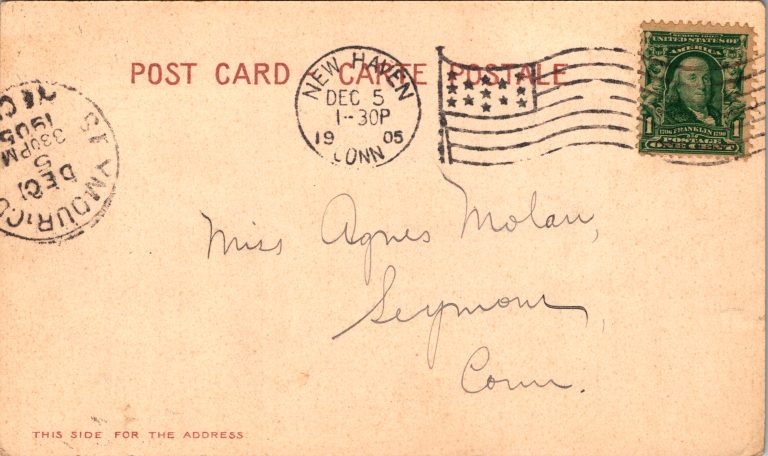 POST CARD CARTE POSTALE
NEW HAVEN
DEC 5
1-30P
1905
CONN
SERIES 1902
UNITED STATES OF
AMERICA
1706 FRANKLIN 1790
1 1
POSTAGE
ONE CENT
SEYMOUR, CO
DEC
5
330PM
1905
Miss Agnes Molan,
Seymour,
Conn.
THIS SIDE FOR THE ADDRESS